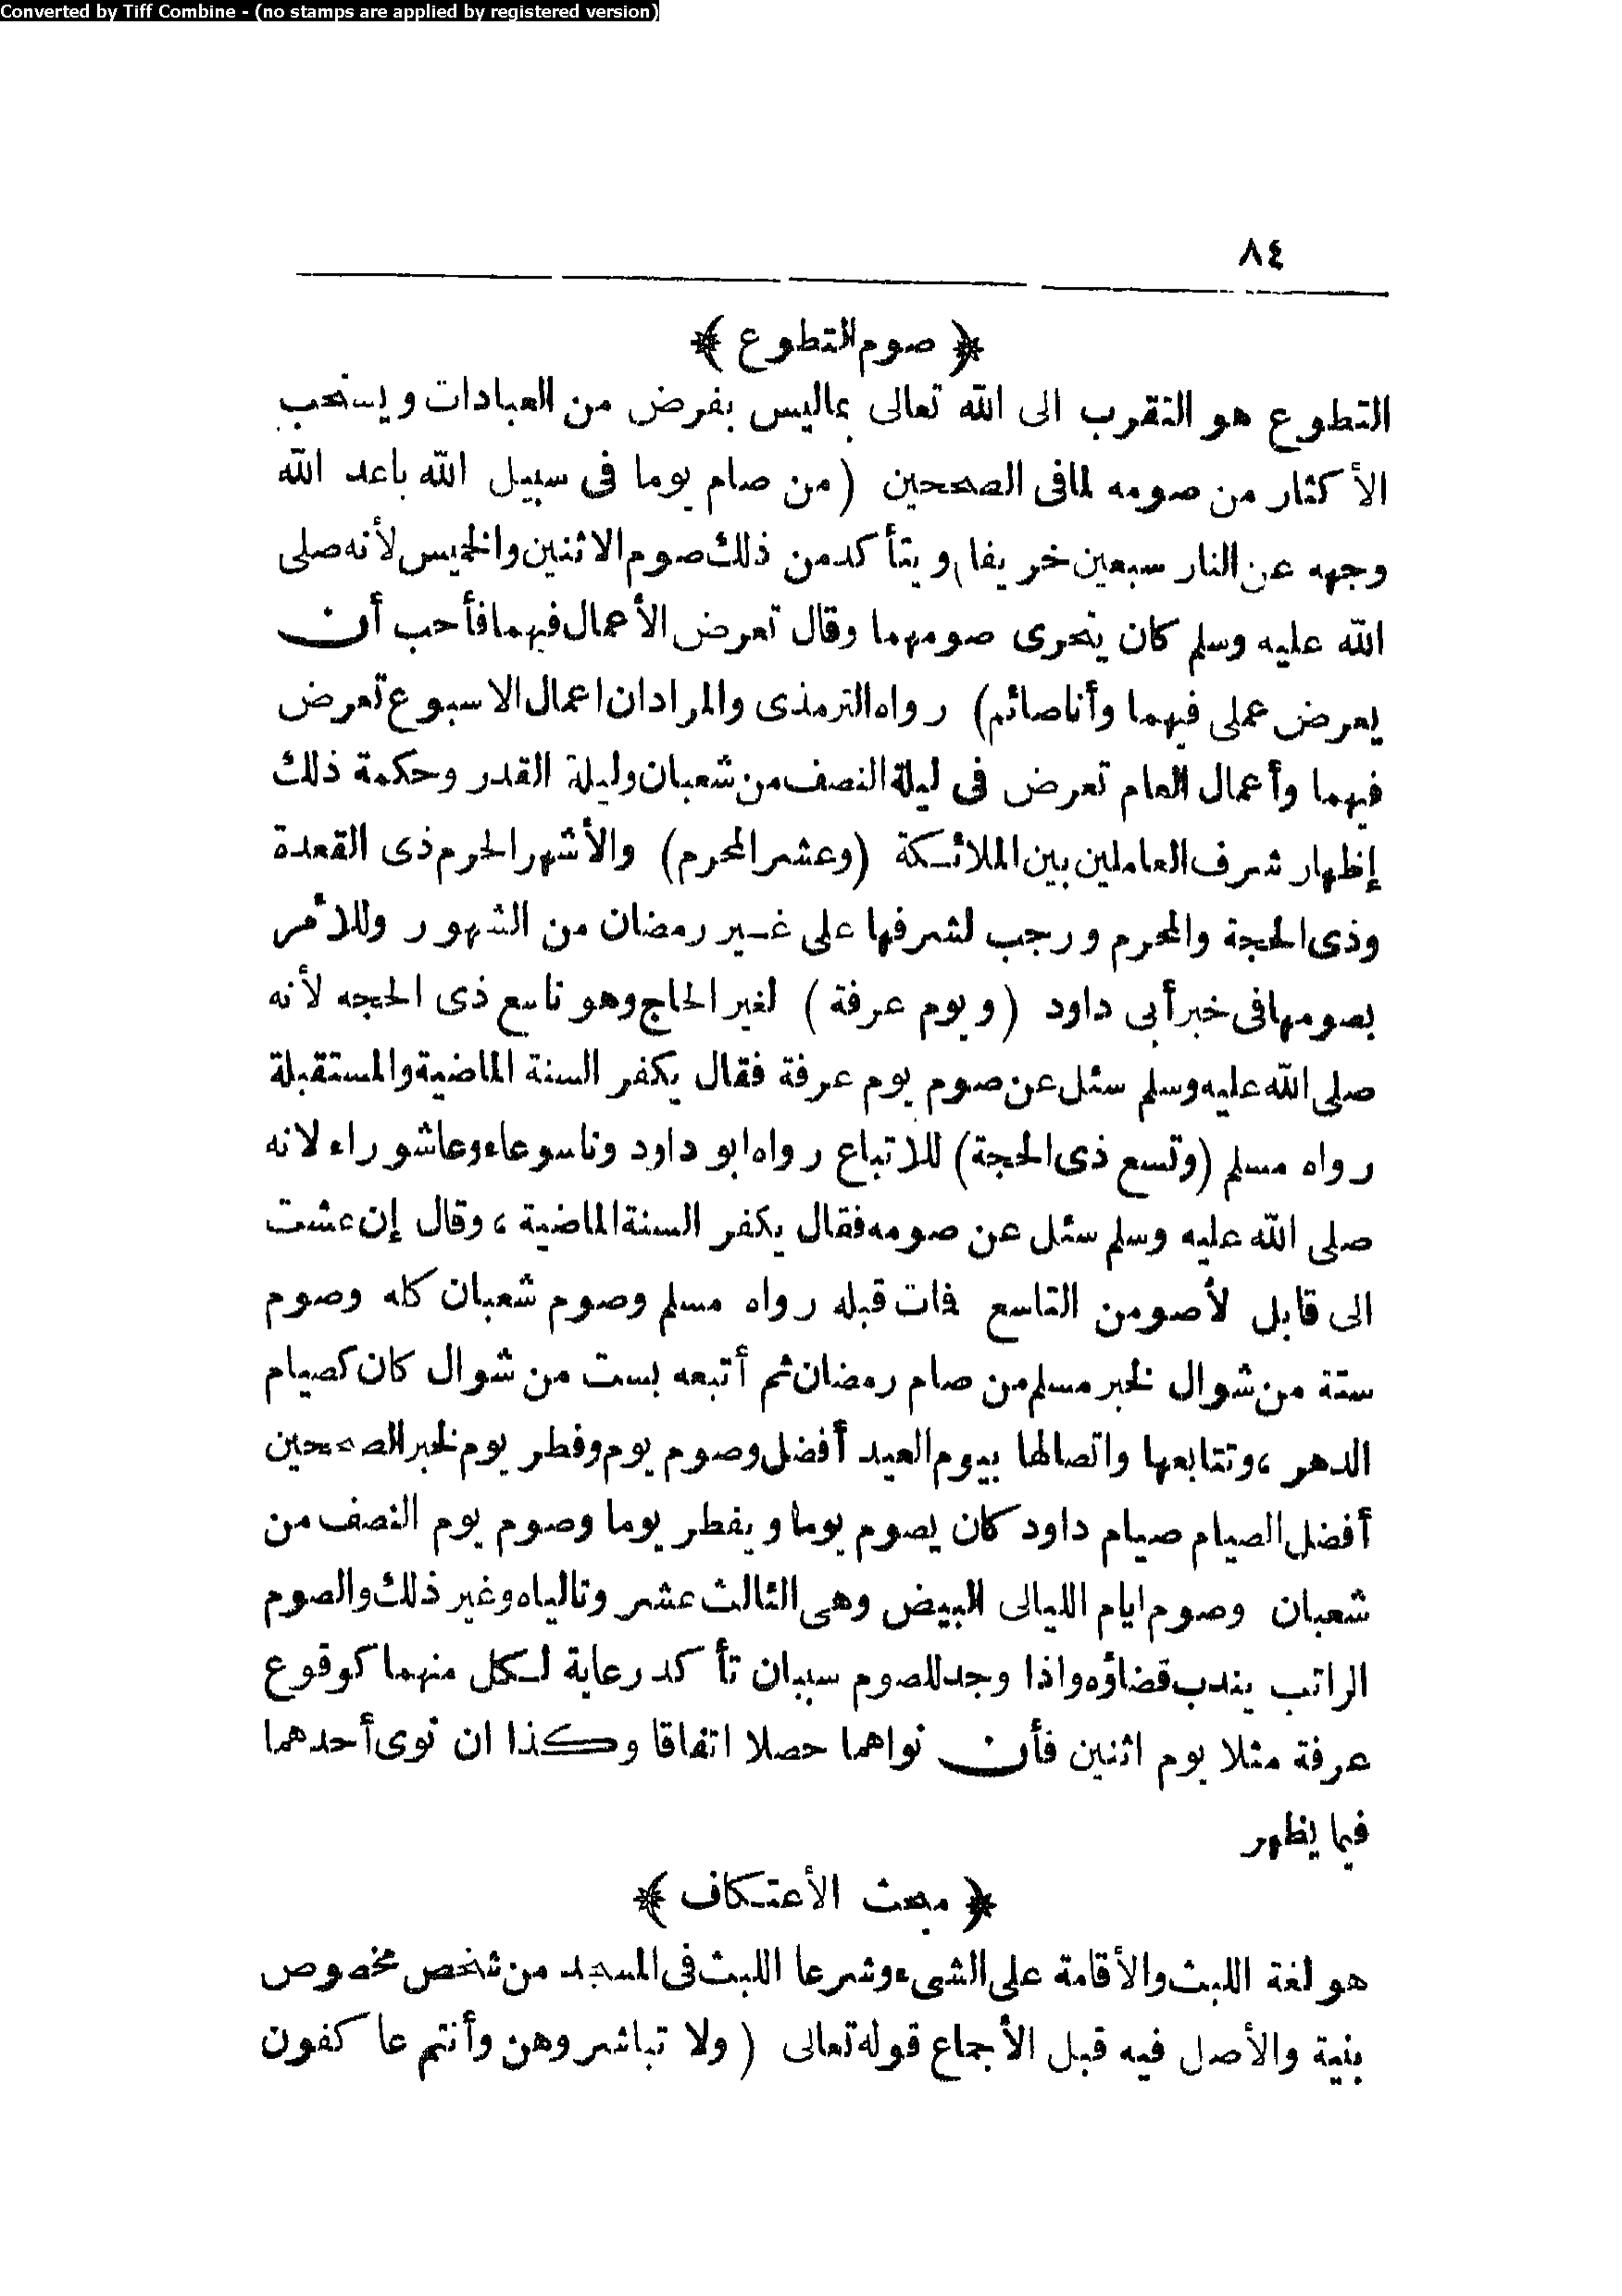 Converted by Tiff Combine - (no stamps are applied by registered version)
٨٤
﴿ صوم التطوع ﴾
التطوع هو التقرب الى الله تعالى بماليس بفرض من العبادات ويستحب
الأكثار من صومه لما فى الصحيحين (من صام يوما فى سبيل الله باعد الله
وجهه عن النار سبعين خريفا) ويتأكد من ذلك صوم الاثنين والخميس لأنه صلى
الله عليه وسلم كان يتحرى صومهما وقال تعرض الأعمال فيهما فأحب أن
يعرض عملى فيهما وأنا صائم) رواه الترمذى والمراد ان اعمال الاسبوع تعرض
فيهما وأعمال العام تعرض فى ليلة النصف من شعبان وليلة القدر وحكمة ذلك
إظهار شرف العاملين بين الملائكة (وعشر المحرم) والأشهر الحرم ذى القعدة
وذى الحجة والمحرم ورجب لشرفها على غير رمضان من الشهور وللأمر
بصومها فى خبر أبى داود (ويوم عرفة) لغير الحاج وهو تاسع ذى الحجه لأنه
صلى الله عليه وسلم سئل عن صوم يوم عرفة فقال يكفر السنة الماضية والمستقبلة
رواه مسلم (وتسع ذى الحجة) للاتباع رواه ابو داود وتاسوعاء وعاشوراء لانه
صلى الله عليه وسلم سئل عن صومه فقال يكفر السنة الماضية، وقال إن عشت
الى قابل لأصومن التاسع فمات قبله رواه مسلم وصوم شعبان كله وصوم
ستة من شوال لخبر مسلم من صام رمضان ثم أتبعه بست من شوال كان كصيام
الدهر، وتتابعها واتصالها بيوم العيد أفضل وصوم يوم وفطر يوم لخبر الصحيحين
أفضل الصيام صيام داود كان يصوم يوما ويفطر يوما وصوم يوم النصف من
شعبان وصوم ايام الليالى البيض وهى الثالث عشر وتالياه وغير ذلك والصوم
الراتب يندب قضاؤه واذا وجد للصوم سببان تأكد رعاية لكل منهما كوقوع
عرفة مثلا يوم اثنين فأن نواهما حصلا اتفاقا وكذا ان نوى أحدهما
فيما يظهر
﴿ مبحث الأعتكاف ﴾
هو لغة اللبث والأقامة على الشىء وشرعا اللبث فى المسجد من شخص مخصوص
بنية والأصل فيه قبل الأجماع قوله تعالى (ولا تباشروهن وأنتم عاكفون